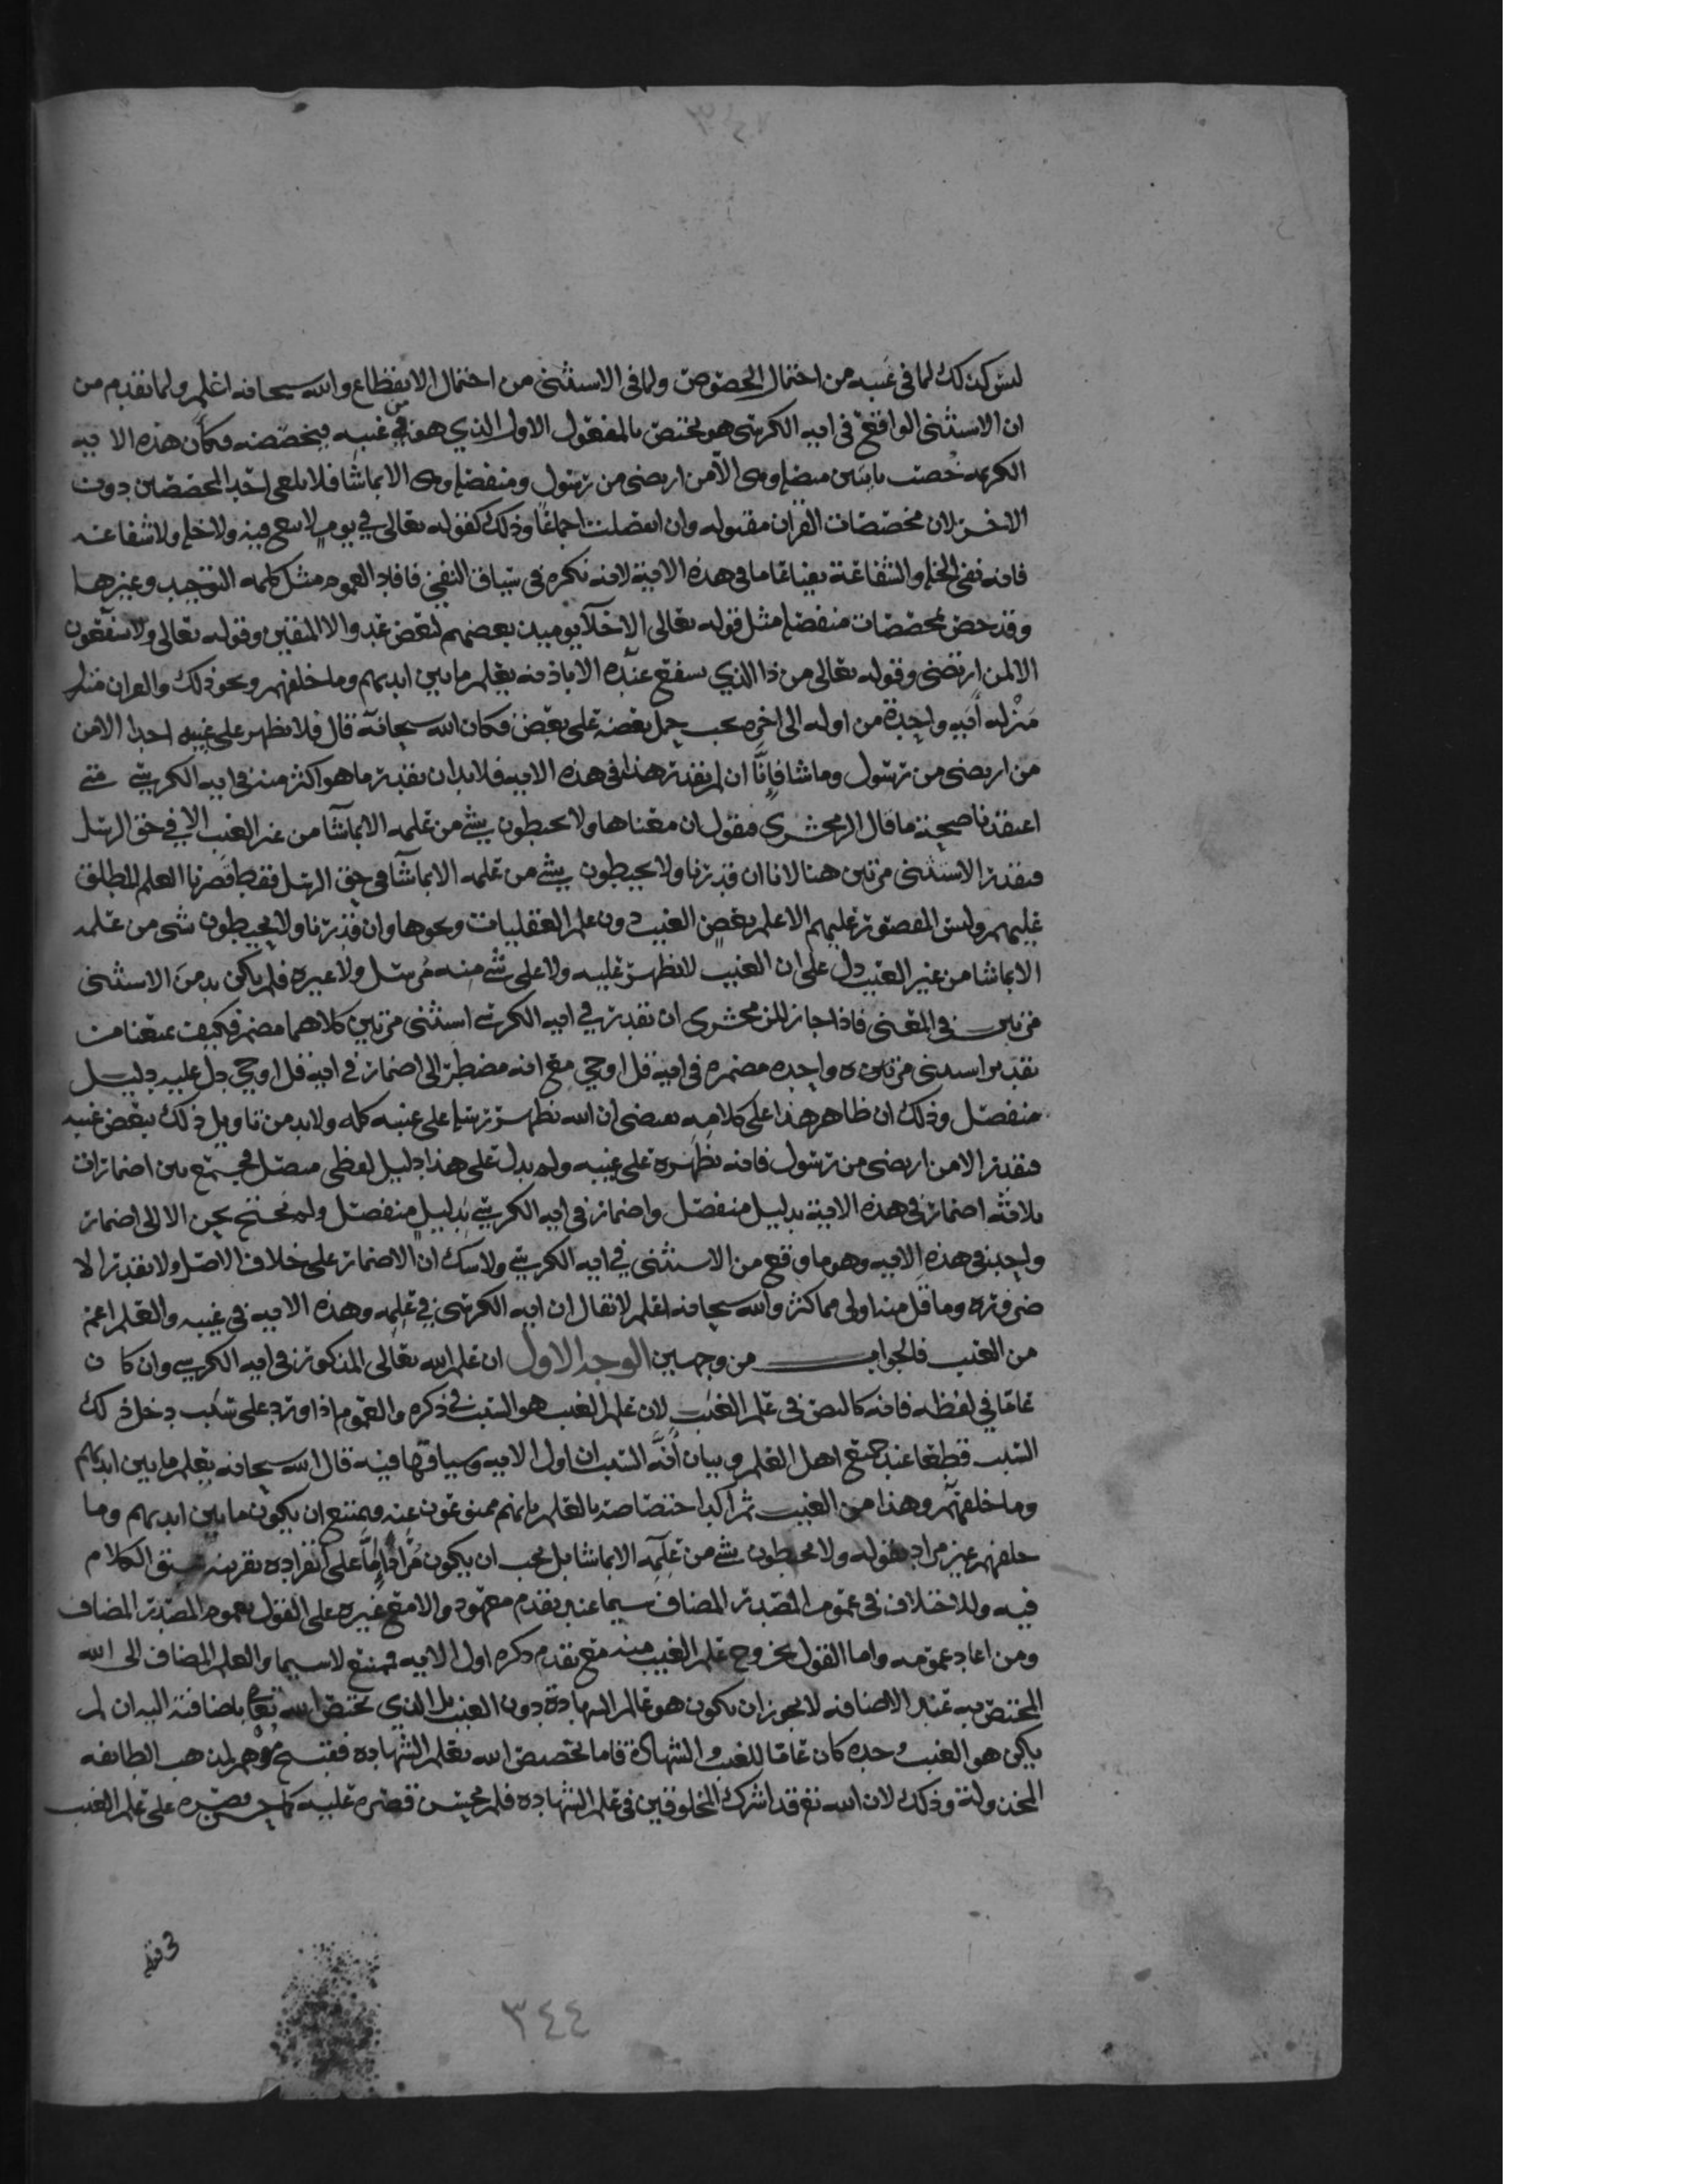 ليس كذلك لما في غيبه من احتمال الخصوص ولما في الاستثنى من احتمال الانقطاع والله سبحانه اعلم ولما تقدم من
ان الاستثنى الواقع في ايه الكرسي هو يختص بالمفعول الاول الذي هو من غيبه فيخصصه فكان هذه الايه
الكريمه خصت باثنين متصل وهي الا من ارتضى من رسول ومنفصل وهي الا بما شا فلا يلغى احد المخصصين دون
الاخر لان مخصصات القران مقبوله وان انفصلت اجماعا وذلك كقوله تعالى في يوم لا بيع فيه ولا خله ولا شفاعه
فانه نفى الخله والشفاعة نفيا عاما في هذه الاية لانه نكره في سياق النفي فافاد العموم مثل كلمه التوحيد وغيرها
وقد خص بمخصصات منفصله مثل قوله تعالى الاخلآ يوميذ بعضهم لبعض عدو الا المتقين وقوله تعالى ولا يشفعون
الا لمن ارتضى وقوله تعالى من ذا الذي يشفع عنده الا باذنه يعلم ما بين ايديهم وما خلفهم ونحو ذلك والقران منزل
منزله ايه واحدة من اوله الى اخره يجب حمل بعضه على بعض فكان الله سبحانه قال فلا يظهر على غيبه احدا الا من
من ارتضى من رسول وما شا فانَّا ان لم نقدر هذا في هذه الايه فلا بد ان نقدر ما هو اكثر منه في ايه الكرسي متى
اعتقدنا صحة ما قال الزمخشري فنقول ان معناها ولا يحيطون بشي من علمه الا بما شآ من غير الغيب الا في حق الرسل
فنقدر الاستثنى مرتين هنا لانا ان قدرنا ولا يحيطون بشي من علمه الا بما شآ في حق الرسل فقط قصرنا العلم المطلق
عليهم وليس المقصور عليهم الا علم بعض الغيب دون علم العقليات ونحوها وان قدرنا ولا يحيطون بشي من علمه
الا بما شا من غير الغيب دل على ان الغيب لا يظهر عليه ولا على شي منه مرسل ولا غيره فلم يكن بد من الاستثنى
مرتين في المعنى فاذا جاز للزمخشري ان نقدر في ايه الكرسي استثنى مرتين كلاهما مضمر فكيف يمنعنا من
تقدير استثنى مرتين واحده مضمره في اية قل اوحي مع انه مضطر الى اضمار في اية قل اوحي دل عليه دليل
منفصل وذلك ان ظاهر هذا على كلامه يقتضي ان الله يظهر رسله على غيبه كله ولا بد من تاويل ذلك ببعض غيبه
فنقدر الا من ارتضى من رسول فانه يظهره على غيبه ولم يدل على هذا دليل لفظي متصل فيجتمع من اضمارات
ثلاثه اضمار في هذه الاية بدليل منفصل واضمار في ايه الكرسي بدليل منفصل ولم نحتج نحن الا الى اضمار
واحد في هذه الايه وهو ما وقع من الاستثنى في ايه الكرسي ولا شك ان الاضمار على خلاف الاصل ولا نقدر الا
ضروره وما قل منه اولى مما كثر والله سبحانه اعلم لا يقال ان ايه الكرسي في علمه وهذه الايه في غيبه والعلم اعم
من الغيب فالجواب من وجهين الوجه الاول ان علم الله تعالى المذكور في ايه الكرسي وان كان
عاما في لفظه فانه كالنص في علم الغيب لان علم الغيب هو السبب في ذكره والعموم اذا ورد على سبب دخل ذلك
السبب قطعا عند جميع اهل العلم وبيان انه السبب ان اول الايه وسياقها فيه قال الله سبحانه يعلم ما بين ايديهم
وما خلفهم وهذا من الغيب ثم اكد اختصاصه بالعلم بانهم ممنوعون عنه فيمتنع ان يكون ما بين ايديهم وما
خلفهم غير مراد بقوله ولا يحيطون بشي من علمه الا بما شا بل يجب ان يكون مرادا اما على انفراده بقرينه سبق الكلام
فيه وللاختلاف في عموم المصدر المضاف سيما عند تقدم معهود والا مع غيره على القول بعموم المصدر المضاف
ومن اعاد عمومه واما القول بخروج علم الغيب منه مع تقدم ذكره اول الايه فممتنع لا سيما والعلم المضاف الى الله
المختص به عند الاضافه لا يجوز ان يكون هو عالم الشهادة دون الغيب بل الذي يختص الله تعالى باضافته اليه ان لم
يكن هو الغيب وحده كان عاما للغيب والشهادة فاما تخصيص الله بعلم الشهاده فقبيح موهم لمذهب الطايفه
المخذولة وذلك لان الله تع قد اشرك المخلوقين في علم الشهاده فلم يحسن قصره عليه كما يحسن قصره على علم الغيب
٣٤٤